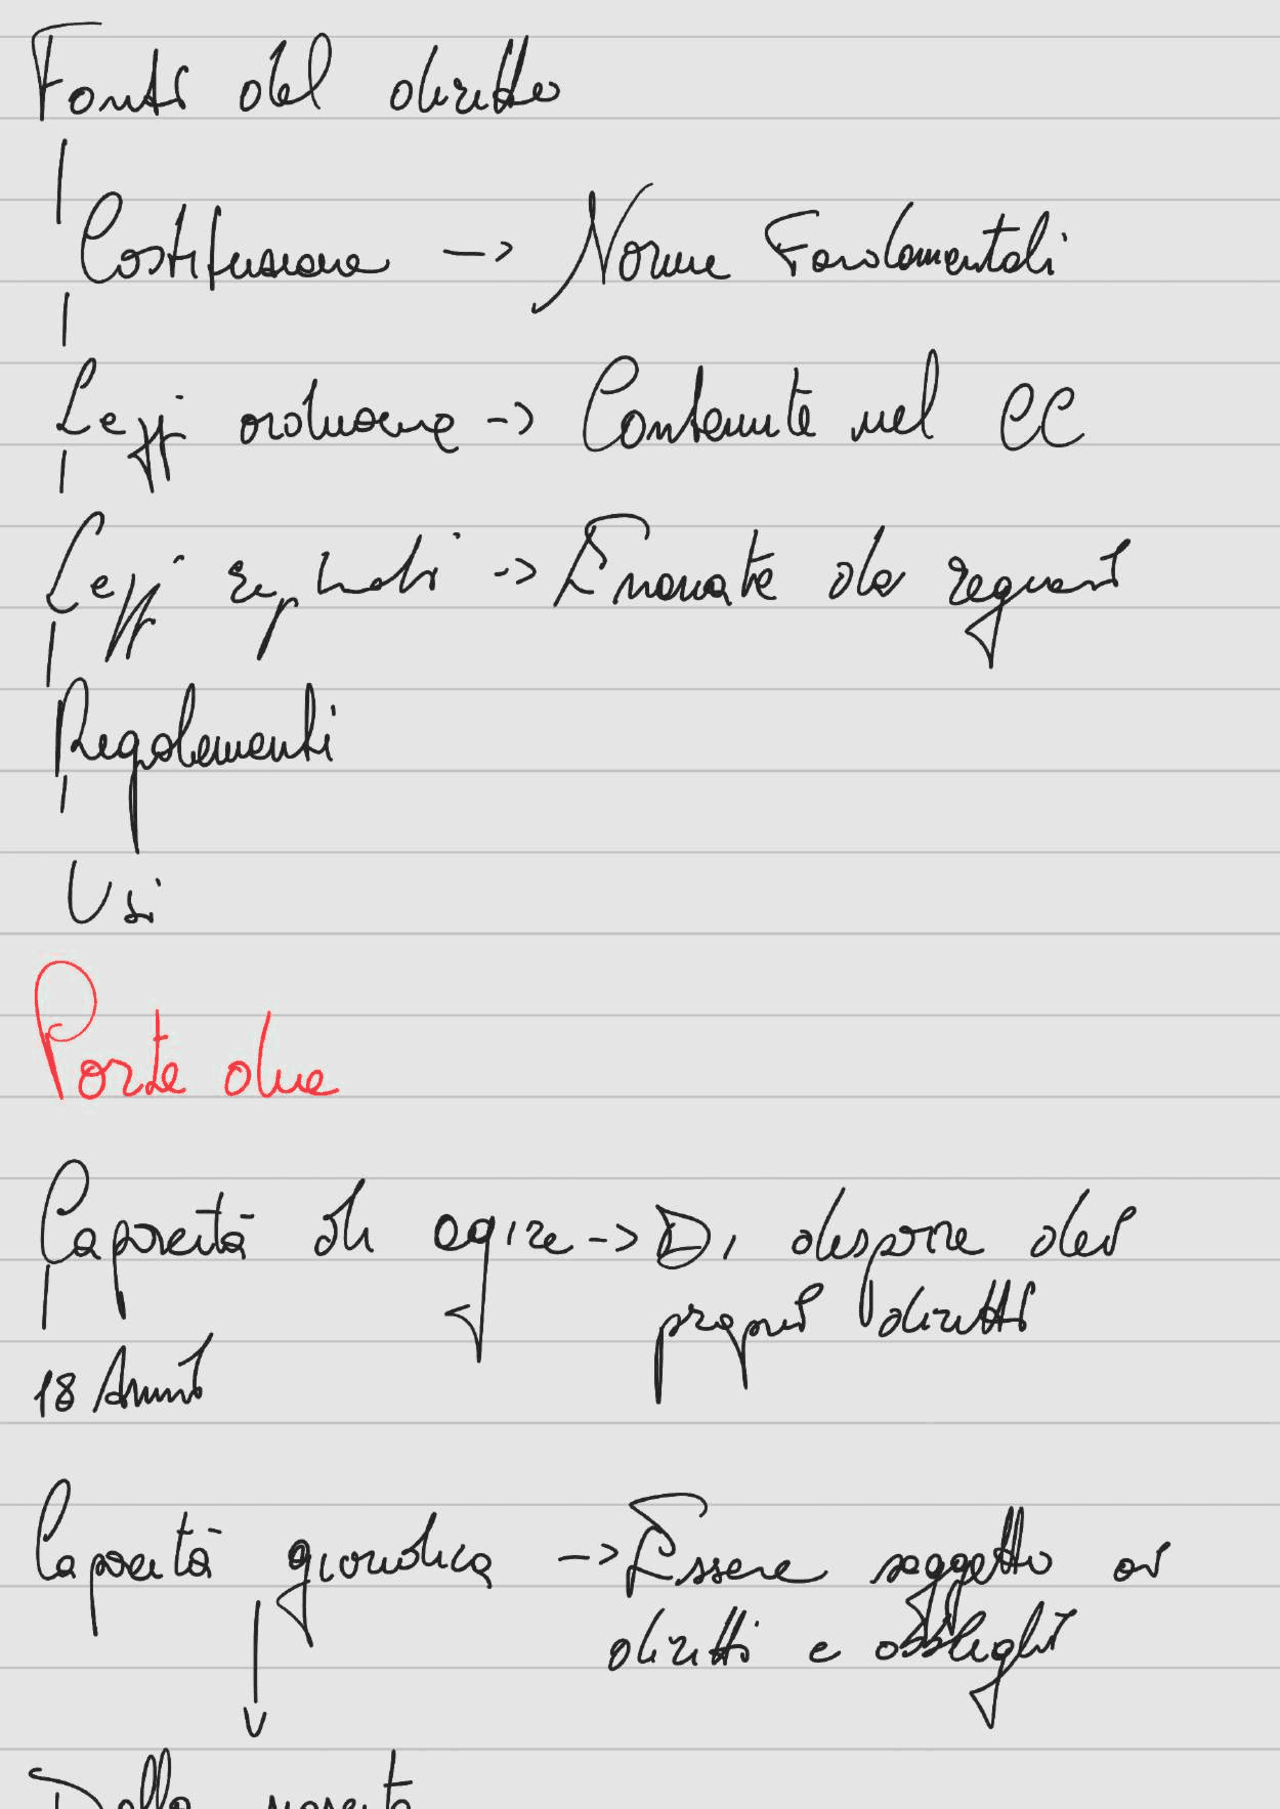 Fonti del diritto
Costituzione -> Norme Fondamentali
Leggi ordinarie -> Contenute nel CC
Leggi -> Emanate da
Regolamenti
Usi
Parte due
Capacità di agire -> Di disporre dei
propri diritti
18 Anni
Capacità giuridica -> Essere soggetto ai
diritti e obblighi
Dalla nascita